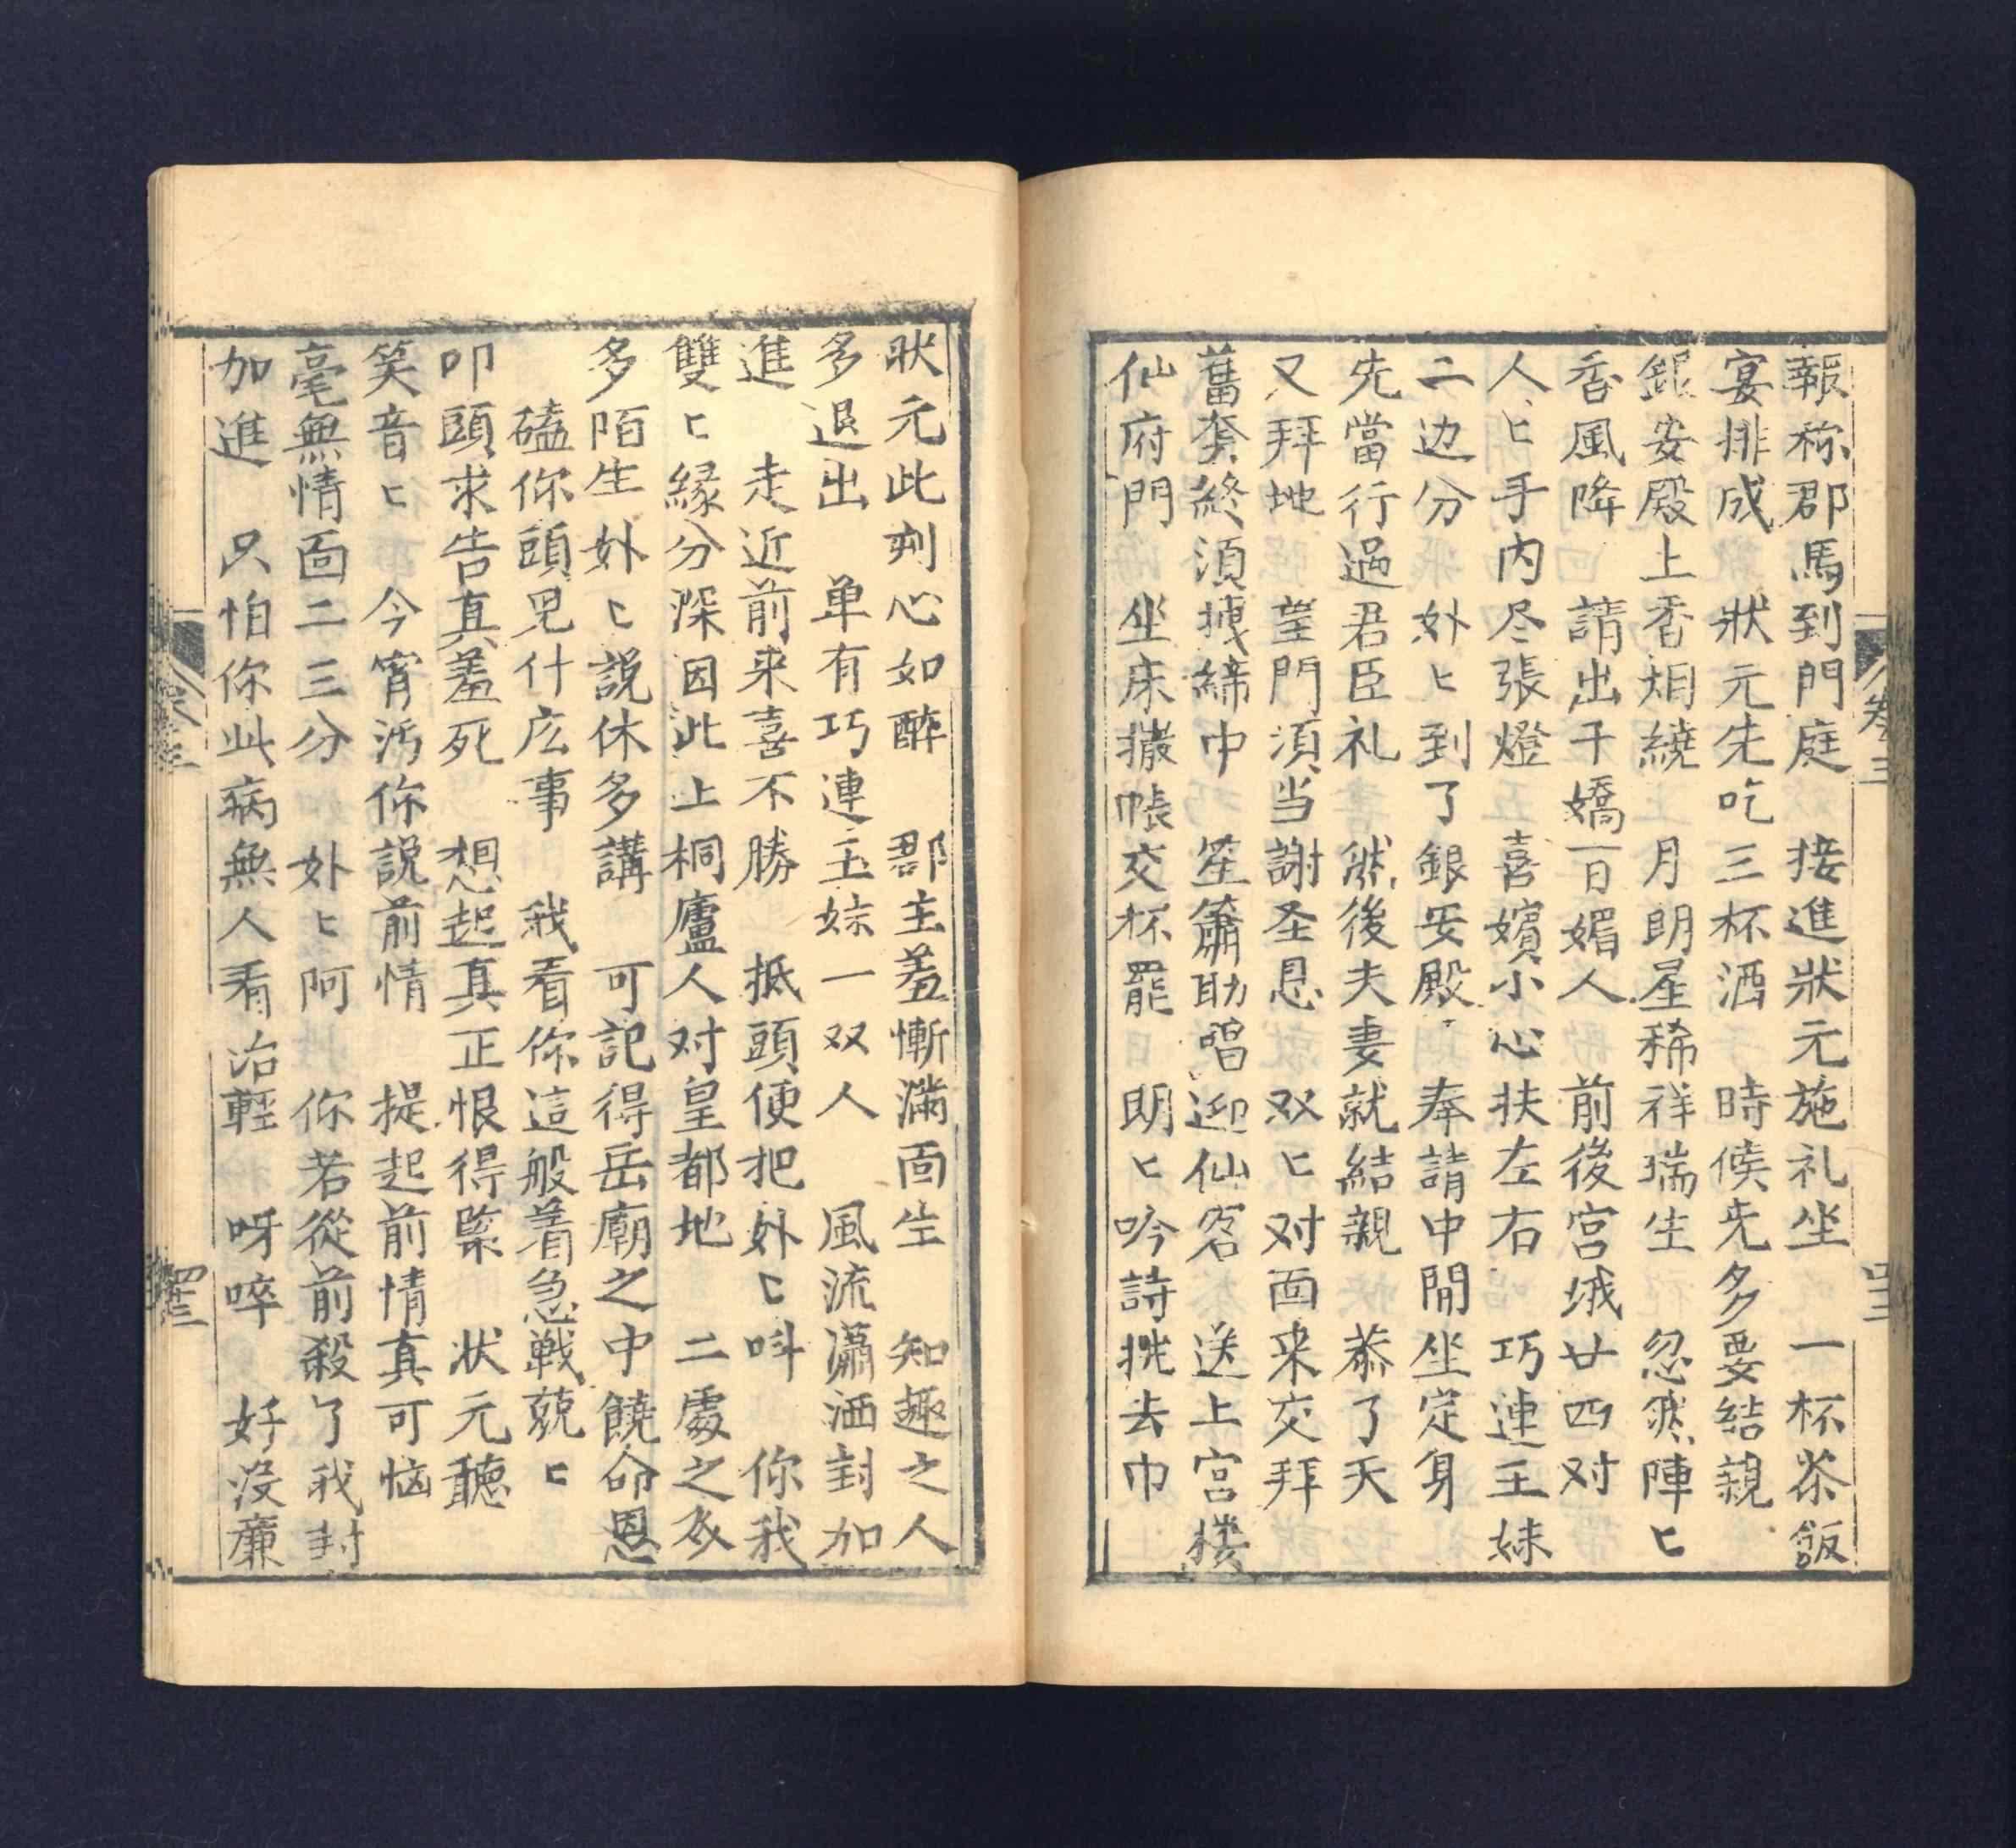 報称郡馬到門庭　接進狀元施礼坐　一杯茶飯
宴排成　狀元先吃三杯酒　時候先多要結親
銀安殿上香烟繞　月朗星稀祥瑞生　忽然陣匕
香風降　請出千嬌百媚人　前後宮娥廿四对
人匕手内尽張燈　喜嬪小心扶左右　巧連王妹
二边分　外匕到了銀安殿　奉請中間坐定身
先當行過君臣礼　然後夫妻就結親　恭了天
又拜地　望門須当謝圣恩　双匕对面来交拜
舊套終須拽締巾　笙簫助唱迎仙客　送上宮楼
仙府門　坐床撒帳交杯罷　朗匕吟詩挑去巾
卷三
四二
狀元此刻心如醉　郡主羞慚滿面生　知趣之人
多退出　单有巧連王妹一双人　風流瀟洒封加
進　走近前来喜不勝　抵頭便把外匕呌　你我
雙匕緣分深因此上桐廬人对皇都地　二處之人
多陌生外匕説休多講　可記得岳廟之中饒命恩
磕你頭兒什庅事　我看你這般着急戦兢匕
叩頭求告真羞死　想起真正恨得緊　状元聽
笑音匕　今宵活你説前情　提起前情真可恼
毫無情面二三分　外匕阿　你若從前殺了我封
加進　只怕你此病無人看治輕　呀啐　好没廉
卷三
四三